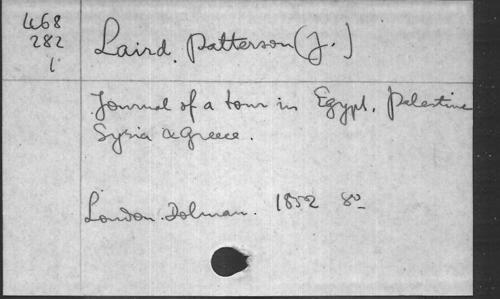 468
282
1
Laird. Patterson (J.)
Journal of a tour in Egypt. Palestine
Syria & Greece.
London. Dolman. 1852 8º